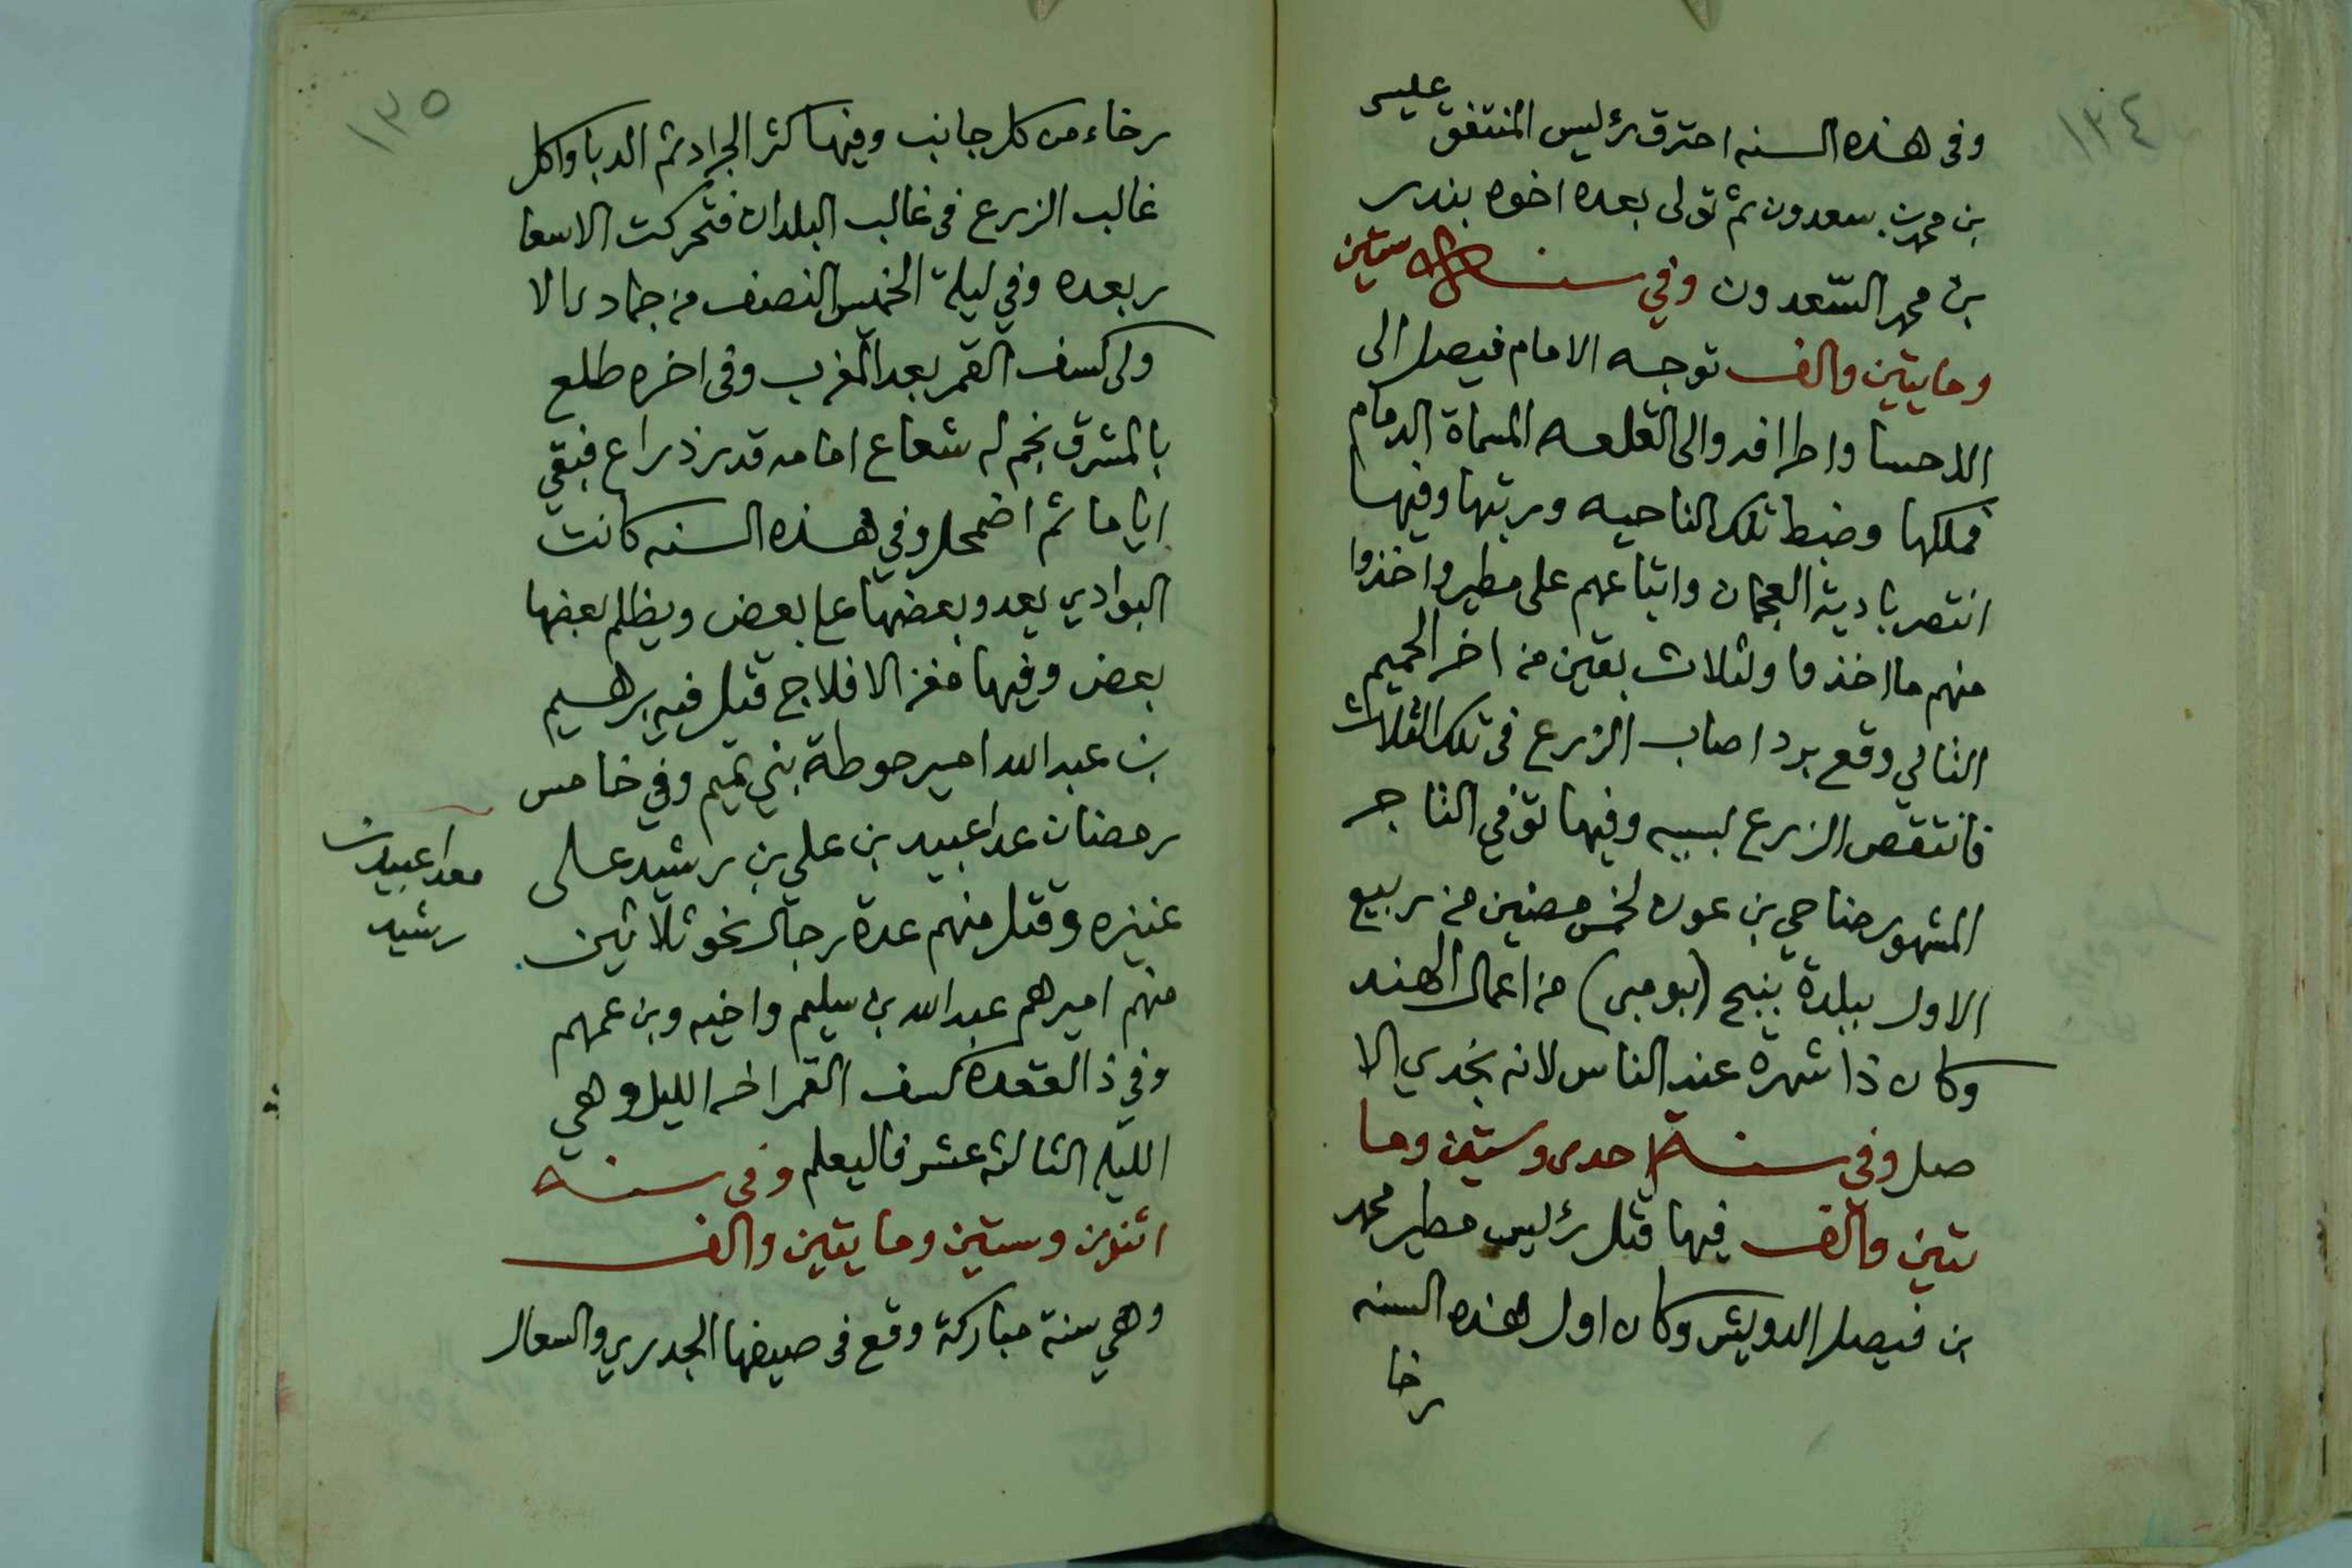 ١٣٤
وفى هذه السنه احترق رئيس المنتفق عليس
بن محمد بن سعدون ثم تولى بعده اخوه بندر
بن محمد السّعدون وفي سنة ستين
ومايتين والف توجه الامام فيصل الى
الاحسا واطرافه والى القلعه المسماة الدمام
فملكها وضبط تلك الناحيه ورتبها وفيها
انتصر بادية العجمان واتباعهم على مطير واخذوا
منهم ما اخذوا ولثلاث بقين من اخر الحميم
الثاني وقع برد اصاب الزرع فى تلك الثلاث
فانتقص الزرع لسببه وفيها توفي التاجر
المشهور مناحي بن عون لخمس مضين من ربيع
الاول ببلدة بنبى (بومبى) من اعمال الهند
وكان ذا شهرة عند الناس لانه نجدي الا
صل وفى سنة احدى وستين وما
يتين والف فيها قتل رئيس مطير محمد
بن فيصل الدويش وكان اول هذه السنه
رخا
١٣٥
رخاء من كل جانب وفيها كثر الجراد ثم الدبا واكل
غالب الزرع فى غالب البلدان فتحركت الاسعا
ر بعده وفي ليلة الخميس النصف من جمادى الا
ولى كسف القمر بعد المغرب وفى اخره طلع
بالمشرق نجم له شعاع امامه قدر ذراع فبقي
اياما ثم اضمحل وفي هذه السنه كانت
البوادي يعدو بعضها على بعض ويظلم بعضها
بعض وفيها مغز الافلاج قتل فيه برهيم
بن عبدالله امير حوطة بني تميم وفي خامس
رمضان عدا عبيد بن علي بن رشيد على
عنيزه وقتل منهم عدة رجال نحو ثلاثين
منهم اميرهم عبدالله بن سليم واخيه وبن عمهم
وفي ذا القعده كسف القمر اخر الليل وهي
الليله الثالثه عشر فاليعلم وفى سنة
اثنين وستين ومايتين والف
وهي سنة مباركة وقع فى صيفها الجدري والسعال
معدا عبيد بن
رشيد